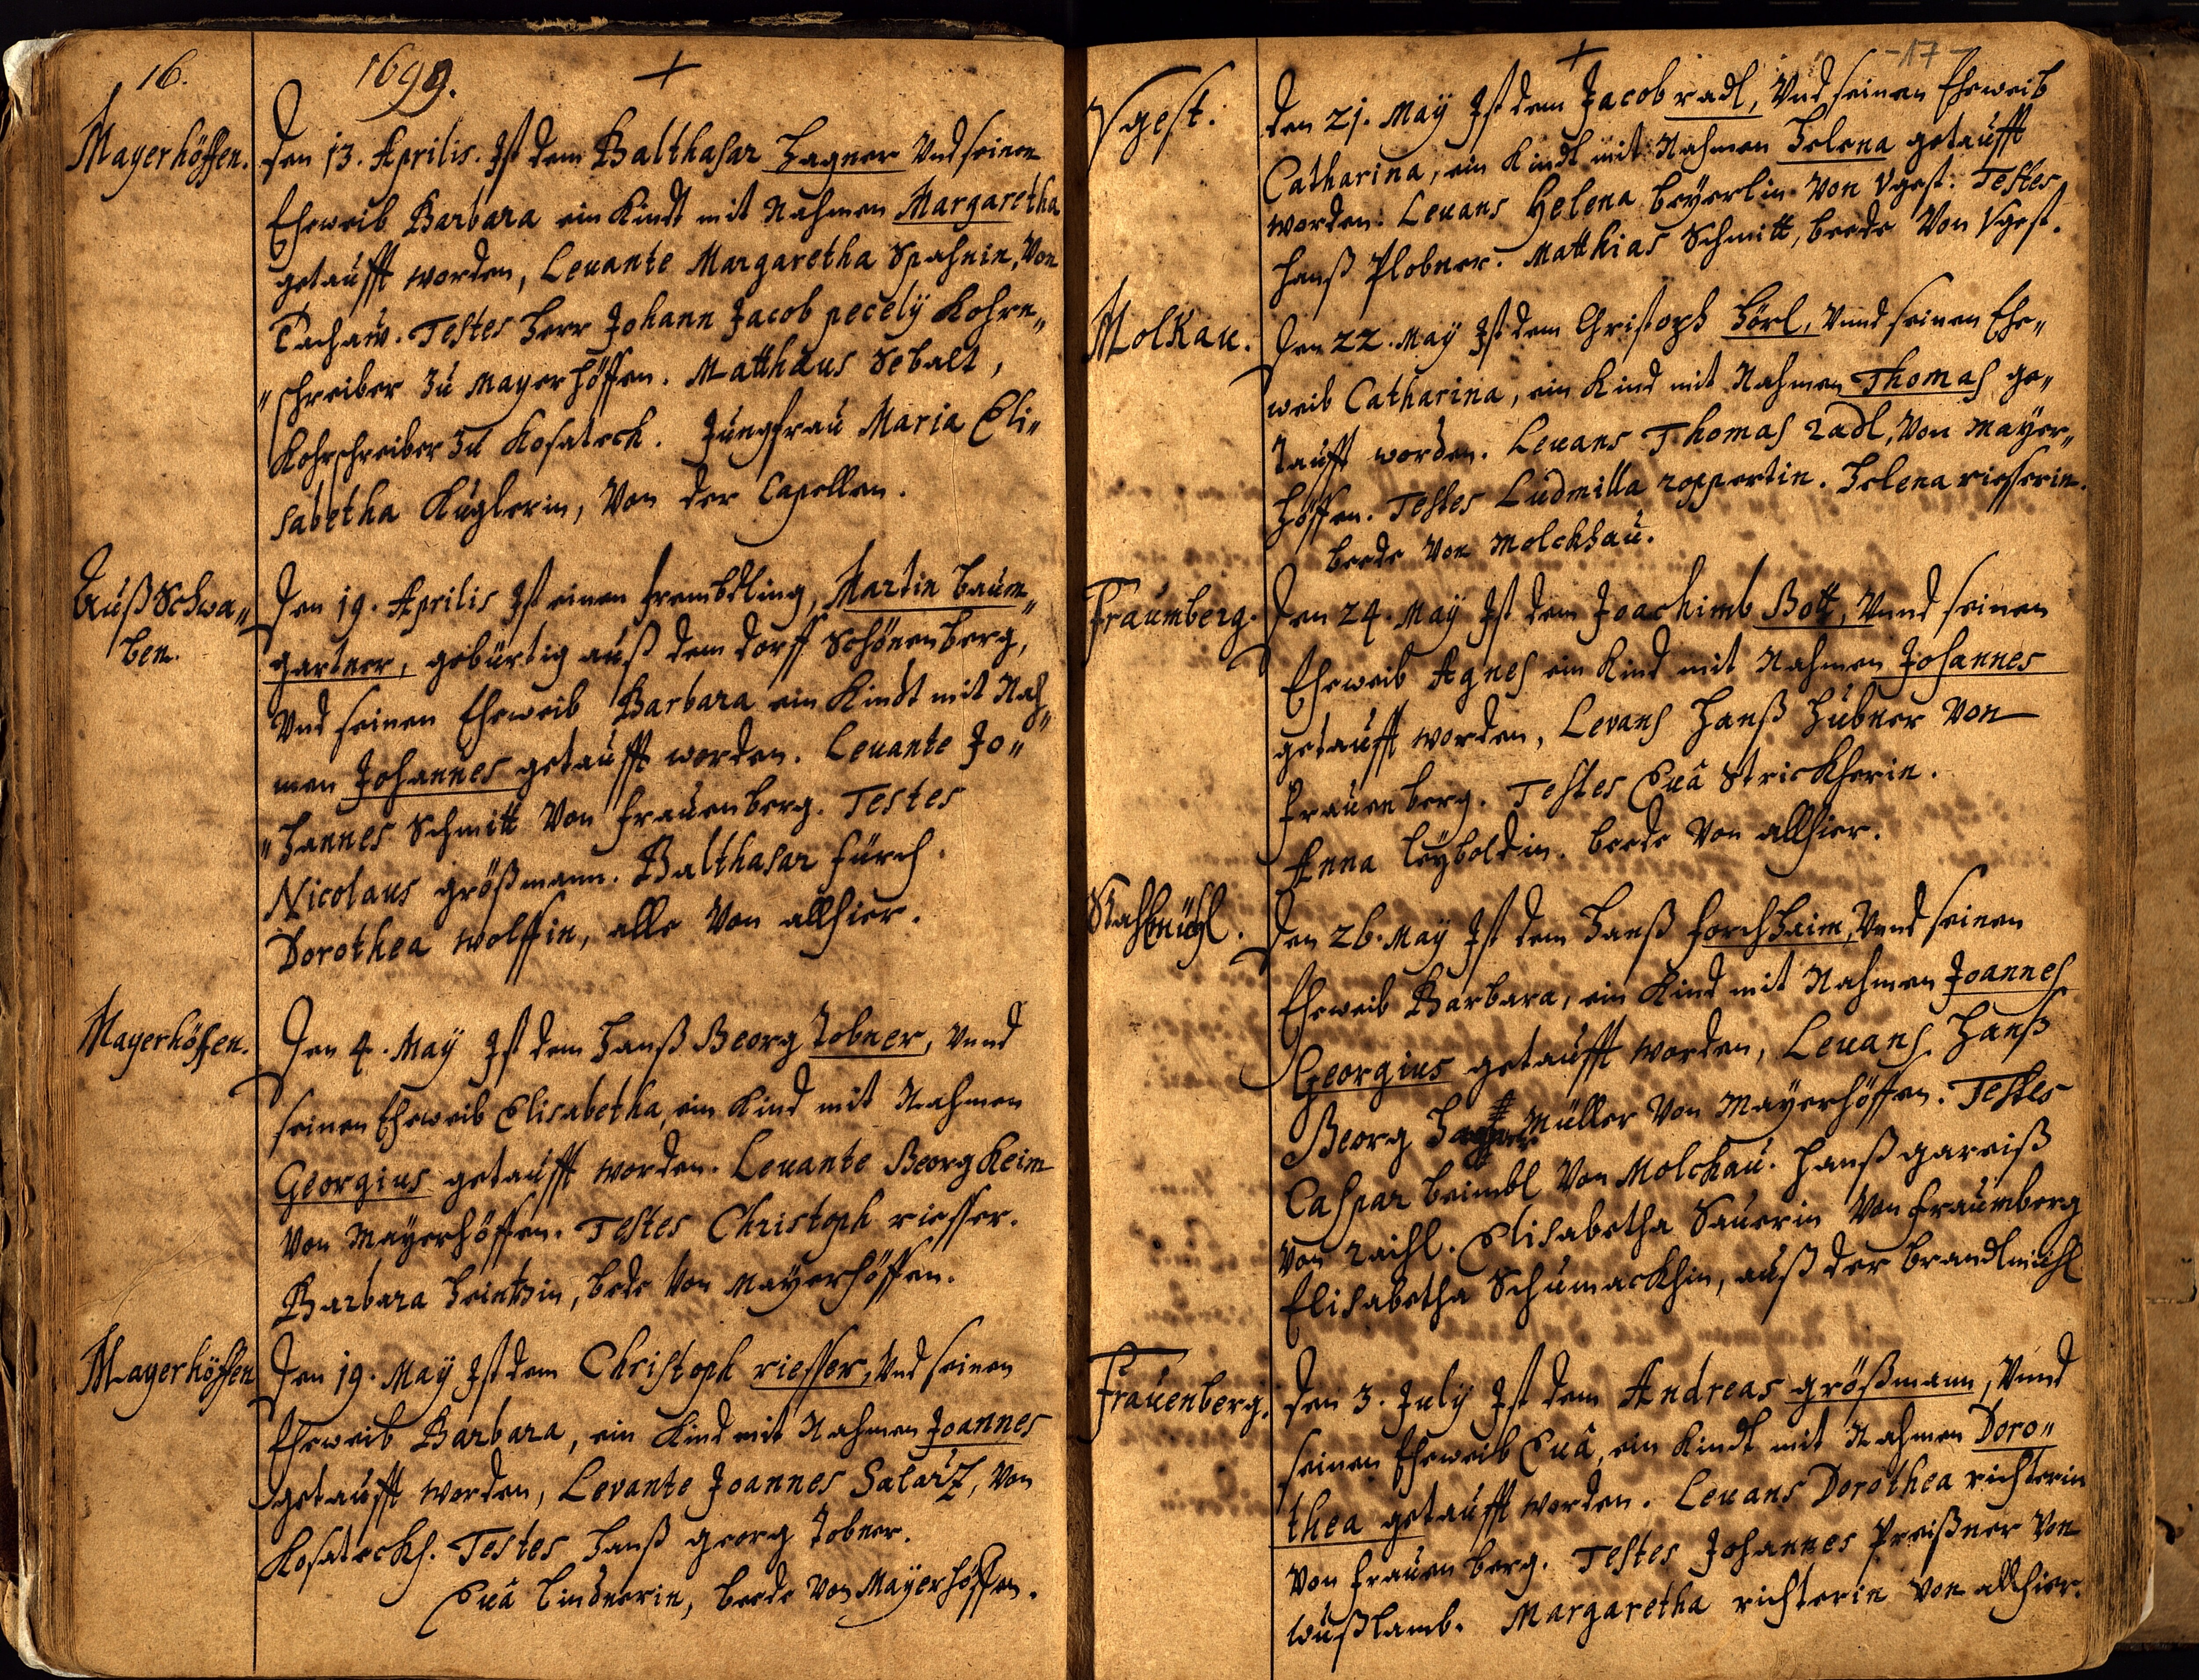 16.
1699.
+
Mayerhöffen.
Den 13. Aprilis. Ist dem Balthasar Hagner Und seinen
Eheweib Barbara ein Kindt mit Nahmen Margaretha
getaufft worden, Leuante Margaretha Spahnin, Von
Tachaw. Testes Herr Johann Jacob pecelÿ Kohrn„
„schreiber zu Mayerhöffen. Matthäus Sebalt,
Kohrschreiber zu Kosateck. Jungfrau Maria Eli„
sabetha Kuglerin, Von der Capellen.
Auß Schwa„
ben.
Den 19. Aprilis Ist einen frembdling, Martin baum„
gartner, gebürtig auß dem dorff Schönenberg,
Vnd seinen Eheweib Barbara ein Kindt mit Nah„
men Johannes getaufft worden. Leuante Jo„
„hannes Schmitt Von Frauenberg. Testes
Nicolaus größmann. Balthasar fürch.
Dorothea wolffin, alle Von allhier.
Mayerhöffen.
Den 4. Maÿ Ist dem Hanß Georg Tobner, Vnnd
seinen Eheweib Elisabetha, ein Kind mit Nahmen
Georgius getaufft worden. Leuante Georg Keim
Von Mayerhöffen. Testes Christoph riesser.
Barbara Heintzin, bede Von Mayerhöffen.
Mayerhöffen
Den 19. Maÿ Ist dem Christoph riesser, Vnd seinen
Eheweib Barbara, ein Kind mit Nahmen Joannes
getaufft worden, Levante Joannes Salatz, Von
Kosateckh. Testes Hanß georg Tobner.
Euâ lindnerin, beede Von Mayerhöffen.
-17-
+
Vgest.
Den 21. Maÿ Ist dem Jacob radl, Vnd seinen Eheweib
Catharina, ein Kindt mit Nahmen Helena getaufft
worden. Leuans Helena beyerlin Von Vgest. Testes
Hanß Plobner. Matthias Schmitt, beede Von Vgest.
Molkau.
Den 22. Maÿ Ist dem Christoph Hörl, Vnnd seinen Ehe„
weib Catharina, ein Kind mit Nahmen Thomas ge„
taufft worden. Leuans Thomas radl, Von Mayer„
höffen. Testes Ludmilla roppertin. Helena riesserin.
beede Von Molckhau.
Fraumberg.
Den 24. Maÿ Ist dem Joachimb Bott, Vnnd seinen
Eheweib Agnes ein Kind mit Nahmen Johannes
getaufft worden, Levans Hanß Hübner Von
Frauenberg. Testes Euâ Strickherin.
Anna leÿboldin. beede Von allhier.
Den 26. Maÿ Ist dem Hanß forchhaim, Vnnd seinen
Eheweib Barbara, ein Kind mit Nahmen Joannes
Georgius getaufft worden, Leuans Hanß
Georg Müller Von Mayerhöffen. Testes
Caspar beimbl Von Molckau. Hanß gareiß
Von raihl. Elisabetha Sauerin Von fraumberg
Elisabetha Schumackhin, auß der brandlmühl
Frauenberg.
Den 3. Julÿ Ist dem Andreas größmann, Vnnd
seinen Eheweib Euâ, ein Kindt mit Nahmen Doro„
thea getaufft worden. Leuans Dorothea richterin
Von Frauenberg. Testes Johannes Preißner Von
wußlamb. Margaretha richterin Von allhier.